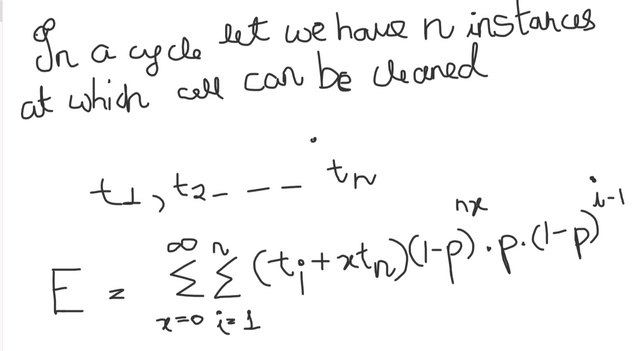 In a cycle let we have n instances
at which cell can be cleaned
t1, t2- - - - tn
E = ∞∑x=0 n∑i=1 (ti+xtn)(1-p)^nx · p · (1-p)^i-1